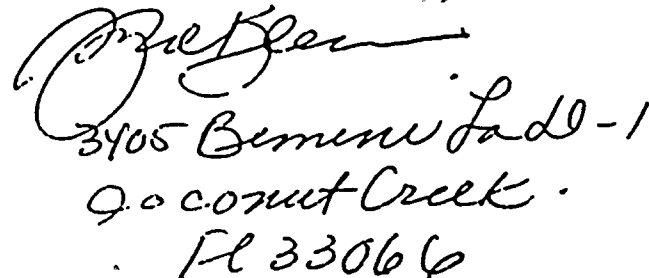 3405 Bimini La D-1
Coconut Creek.
Fl 33066